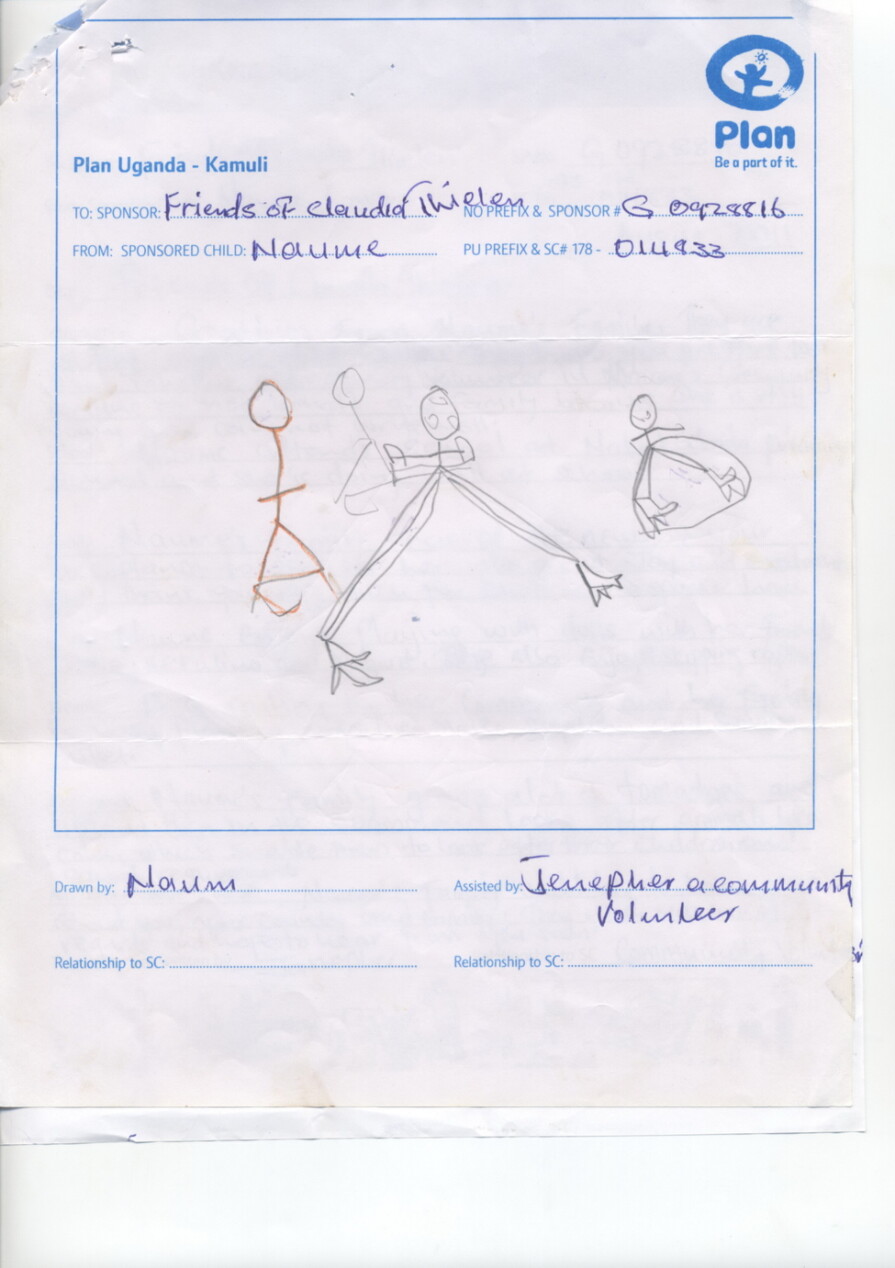 Plan
Be a part of it.
Plan Uganda - Kamuli
TO: SPONSOR: Friends of Claudia Thielen NO PREFIX & SPONSOR # G 0928816
FROM: SPONSORED CHILD: Naume PU PREFIX & SC# 178 - 014833
Drawn by: Naum Assisted by: Jenepher a community
Volunteer
Relationship to SC: Relationship to SC: